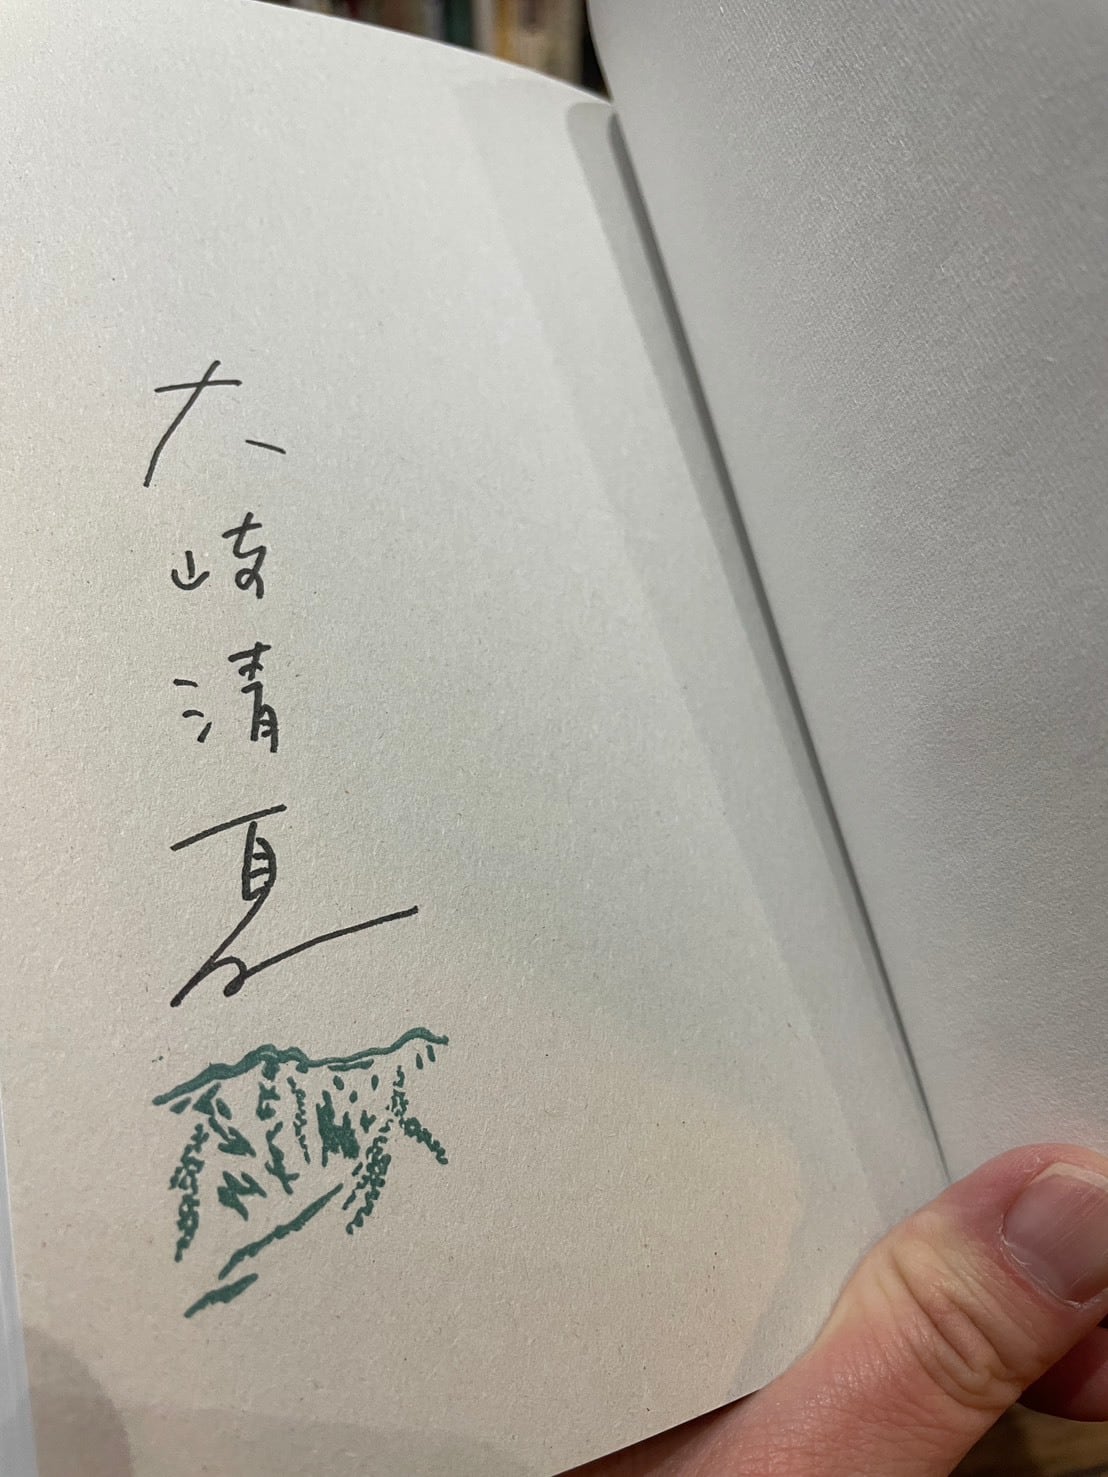 大崎清夏